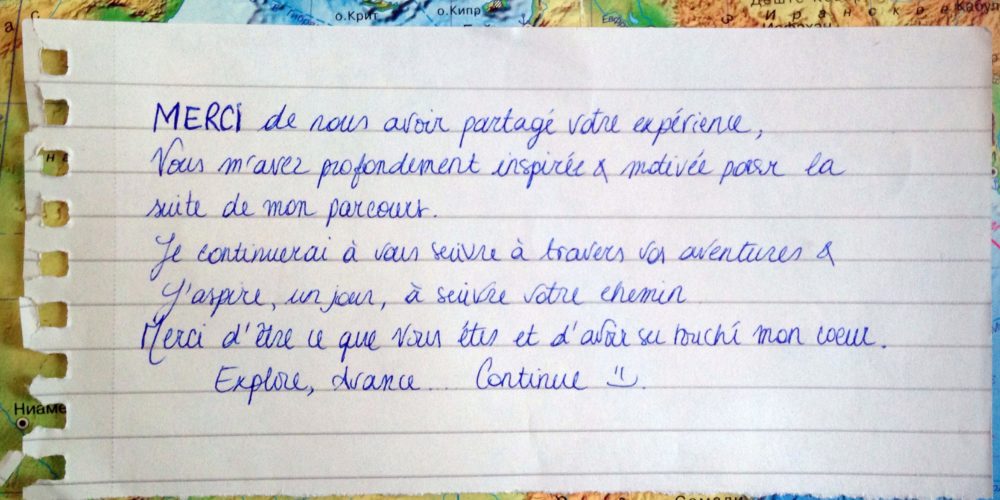 С.
о.Крит
о.Кипр
Иранское
MERCI de nous avoir partagé votre expérience,
Vous m'avez profondément inspirée & motivée pour la
suite de mon parcours.
Je continuerai à vous suivre à travers vos aventures &
J'aspire, un jour, à suivre votre chemin
Merci d'être ce que vous êtes et d'avoir su touché mon coeur.
Explore, Avance... Continue
Ниаме